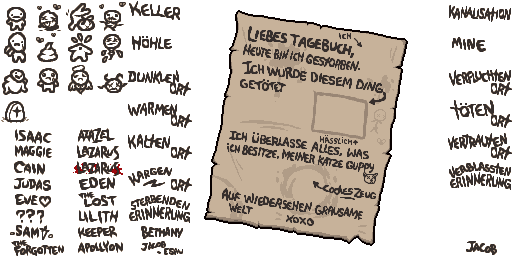 KELLER
HÖHLE
DUNKLEN
ORT
WARMEN
ORT
KALTEN
ORT
KARGEN
ORT
STERBENDEN
ERINNERUNG
ISAAC
MAGGIE
CAIN
JUDAS
EVE
???
SAMS
THE
FORGOTTEN
AZAZEL
LAZARUS
LAZARUS
EDEN
THE
LOST
LILITH
KEEPER
APOLLYON
BETHANY
JACOB
+ ESAU
ICH
LIEBES TAGEBUCH,
HEUTE BIN ICH GESTORBEN.
ICH WURDE DIESEM DING
GETÖTET
HÄSSLICH
ICH ÜBERLASSE ALLES, WAS
ICH BESITZE, MEINER KATZE GUPPY
TODESZEUG
AUF WIEDERSEHEN GRAUSAME
WELT
XOXO
KANALISATION
MINE
VERFLUCHTEN
ORT
TÖTEN
ORT
VERTRAUTEN
ORT
VERBLASSTEN
ERINNERUNG
JACOB